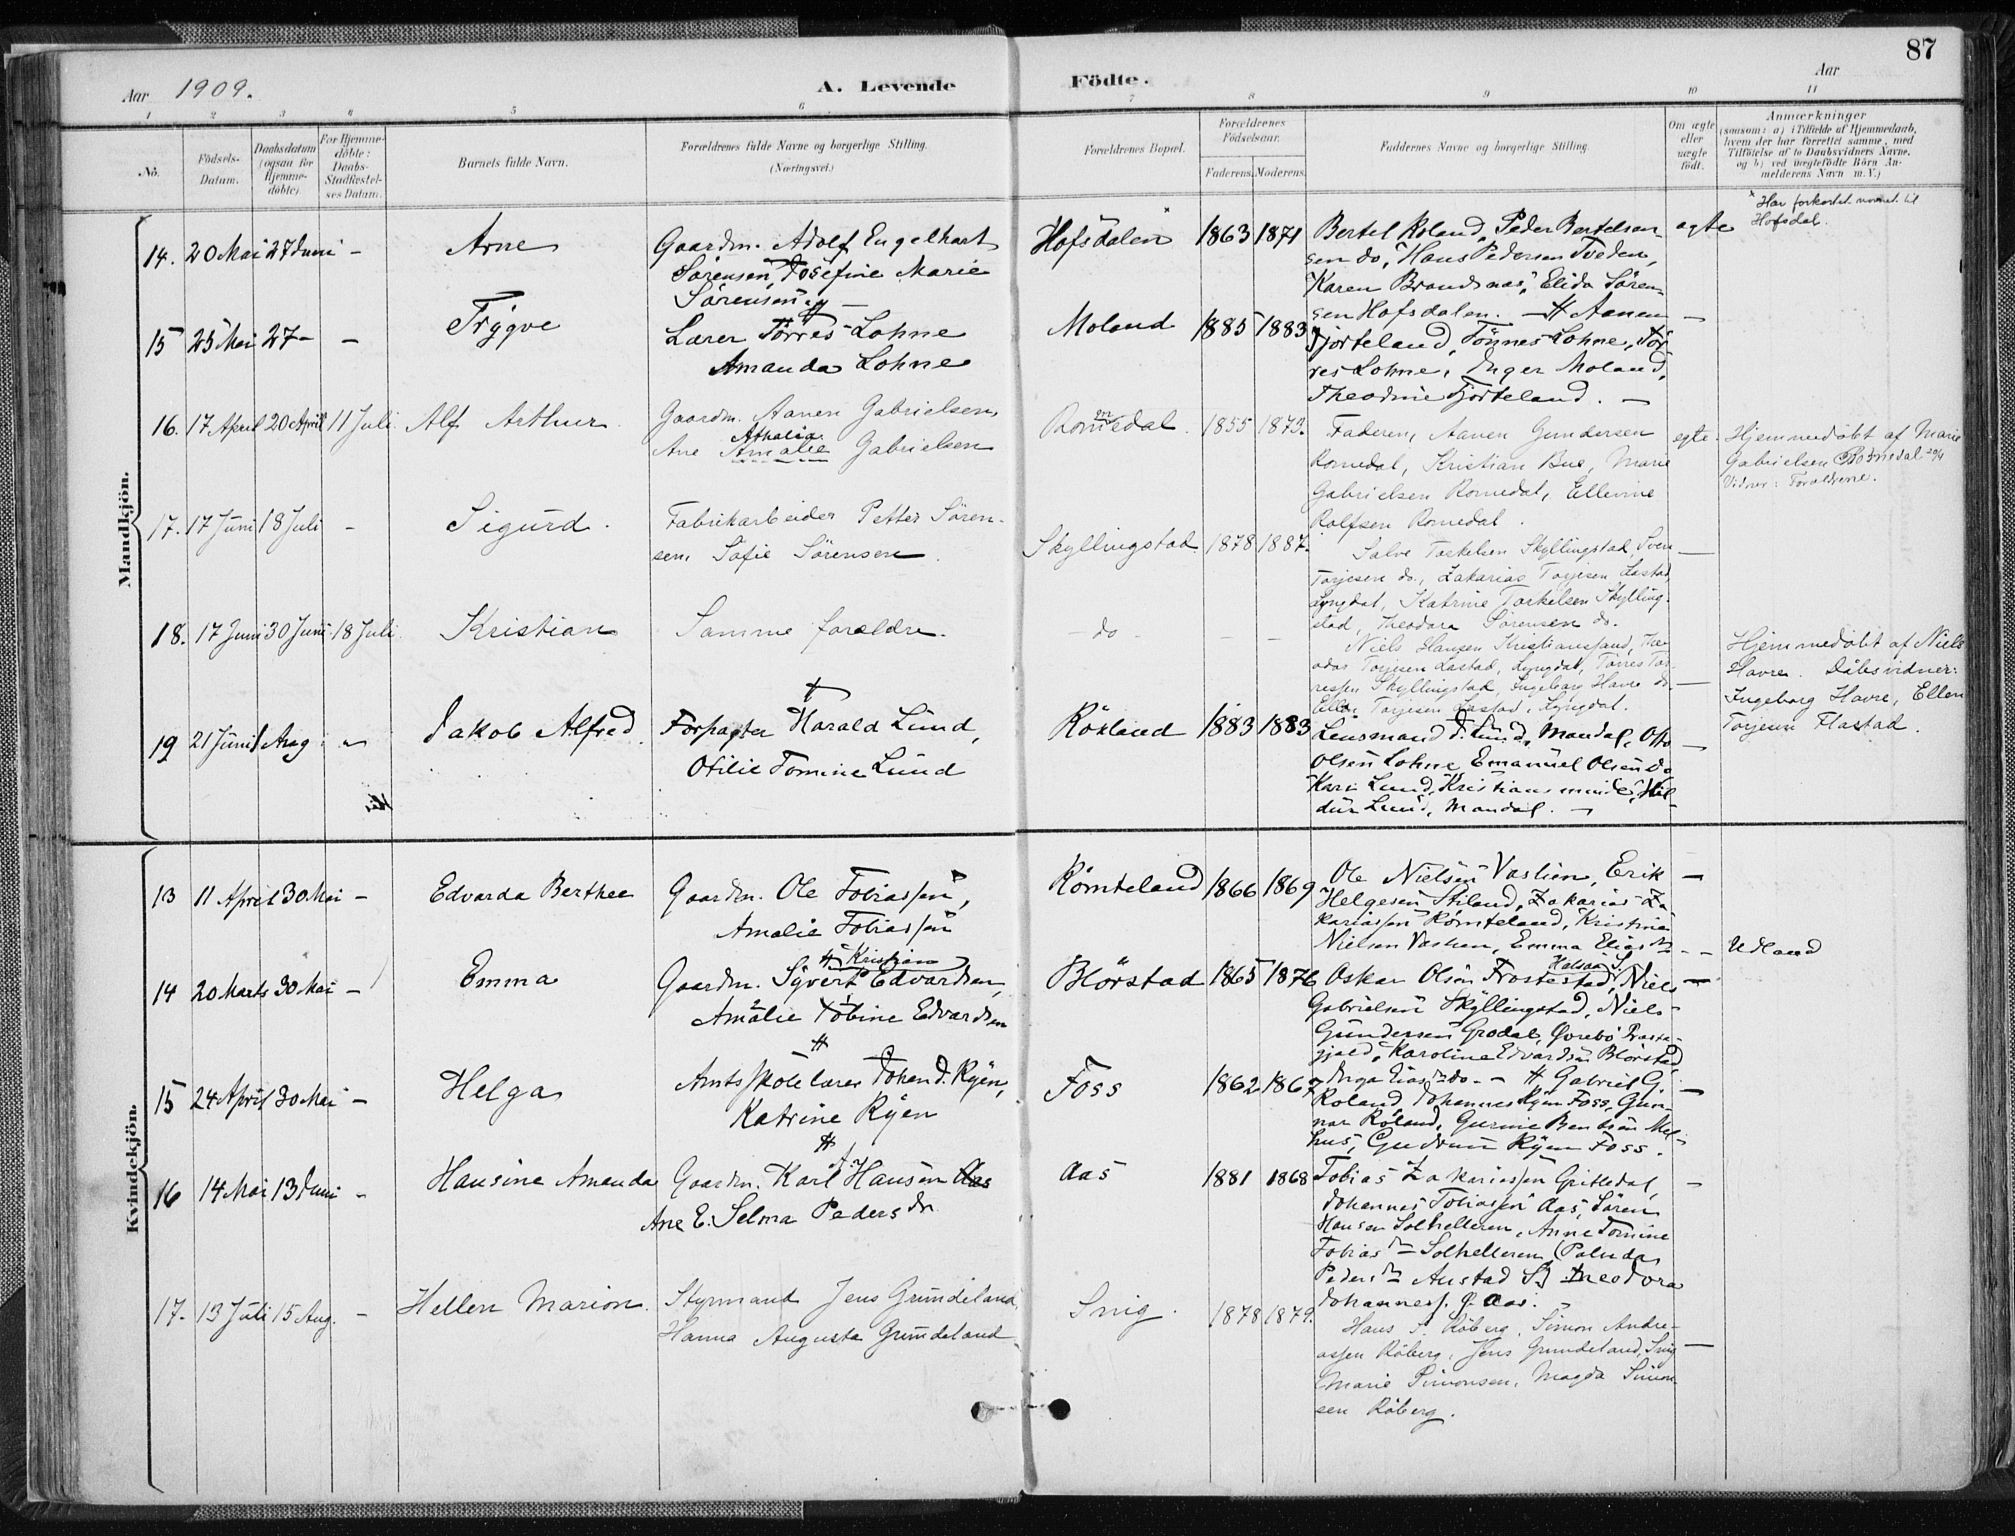 87
Aar 1909.
A. Levende
Födte.
Aar
1 2 3 4 5 6 7 8 9 10 11
No.
Födsels-Datum.
Daabsdatum (ogsaa for Hjemmedöbte).
For Hjemmedöbte: Daabs Stadfæstelses Datum.
Barnets fulde Navn.
Forældrenes fulde Navne og borgerlige Stilling.
(Næringsvei.)
Forældrenes Bopæl.
Forældrenes Födselsaar.
Faderens. Moderens.
Faddernes Navne og borgerlige Stilling.
Om ægte eller uægte födt.
Anmærkninger
(saasom: a) i Tilfælde af Hjemmedaab, hvem der har forrettet samme, med Tilföielse af to Daabsvidners Navne, og b) ved uægtefödte Börn Anmelderens Navn m. V.)
Mandkjön.
14. 20 Mai 27 Juni - Arne
Gaardm. Adolf Engelhart
Sørensen, Josefine Marie
Sørensen
Hofsdalen 1863 1871
Bertel Roland, Peder Bertelsen
sen do, Hans Pedersen Tveden,
Karen Brandsnas, Elida Søren-
sen Hofsdalen.
ægte
* Har forkortet navnet til
Hofsdal.
15 25 Mai 27 - - Trygve
Lærer Tørres Lohne
Amanda Lohne
Moland 1885 1883
Aanen
Fjorteland, Tønnes Lohne, Tør
res Lohne, Inger Moland,
Theodine Fjorteland. -
16. 17 April 20 April 11 Juli Alf Arthur.
Gaardm. Aanen Gabrielsen,
Athalia
Ane Amalie Gabrielsen
Romedal. 1855 1873.
Faderen, Aanen Gundersen
Romedal, Kristian Bue, Marie
Gabrielsen Romedal, Ellevine
Rolfsen Romedal.
egte.
Hjemmedøbt af Marie
Gabrielsen Romedal 20/4
Vidner: Forældrene.
17. 17 Juni 18 Juli - Sigurd.
Fabrikarbeider Petter Søren-
sen, Sofie Sørensen.
Skyllingstad 1878 1887.
Salve Torkelsen Skyllingstad, Sven
Torjesen do., Zakarias Torjesen Lastad,
Lyngdal, Katrine Torkelsen Skylling-
stad, Theodora Sørensen do.
18. 17 Juni 30 Juni 18 Juli. Kristian
Samme forældre.
- do - - -
Niels Hansen Kristianssand, The-
odor Torjesen Lastad, Lyngdal, Tørres Tør-
ressen Skyllingstad, Ingeborg Havre do.
Ellen Torjesen Lastad, Lyngdal.
Hjemmedøbt af Niels
Havre. Dåbsvidner:
Ingeborg Havre, Ellen
Torjesen Flastad.
19 21 Juni 1 Aug. " Jakob Alfred.
Forpagter Harald Lund,
Otilie Tomine Lund
Røkland 1883 1883
Lensmand J. Lund, Mandal, Otto
Olsen Lohne, Emanuel Olsen do
Kari Lund, Kristiansminde, Hil-
dur Lund, Mandal. -
Kvindekjön.
13 11 April 30 Mai - Edvarda Berthee
Gaardm. Ole Tobiassen,
Amalie Tobiassen
Rømteland 1866 1869
Ole Nielsen Vaslien, Erik
Helgesen Stiland, Zakarias Za-
kariassen Rømteland, Kristine
Nielsen Vaslien, Emma Elias dn
Udland
14 20 Marts 30 Mai - Emma
Kristian
Gaardm. Syvert Edvardsen,
Amalie Tobine Edvardsen
Blørstad 1865 1876
Oskar Olsen Frostestad, Niels
Gabrielsen Skyllingstad, Niels
Gundersen Grodal, Øvrebø Præste-
gjeld, Karoline Edvardsen Blørstad,
Inga Elias dn do. -
15 24 April 30 Mai - Helga
Amtsskolelærer Johan D. Ryen,
Katrine Ryen
Foss 1862 1867
Gabriel G.
Roland, Johannes Ryen Foss, Gun-
nar Roland, Gurine Bentsen Mel-
hus, Gudrun Ryen Foss.
16 14 Mai 13 Juni - Hansine Amanda
Gaardm. Karl J. Hansen Aas
Ane E. Selma Peders dn
Aas 1881 1868
Tobias Zakariassen Gritledal,
Johannes Tobiassen Aas, Søren
Hansen Solhelleren, Anne Tomine
Tobias dn Solhelleren (Paluda
Peders dn Austad S) Theodora
Johannes. J. Aas.
17. 13 Juli 15 Aug. - Hellen Marion.
Styrmand Jens Grundeland,
Hanna Auguste Grundeland
Snig. 1878 1879.
Hans S. Røberg, Simon Andre-
assen Røberg, Jens Grundeland, Snig
Marie Simonsen, Magda Simon-
sen Røberg.